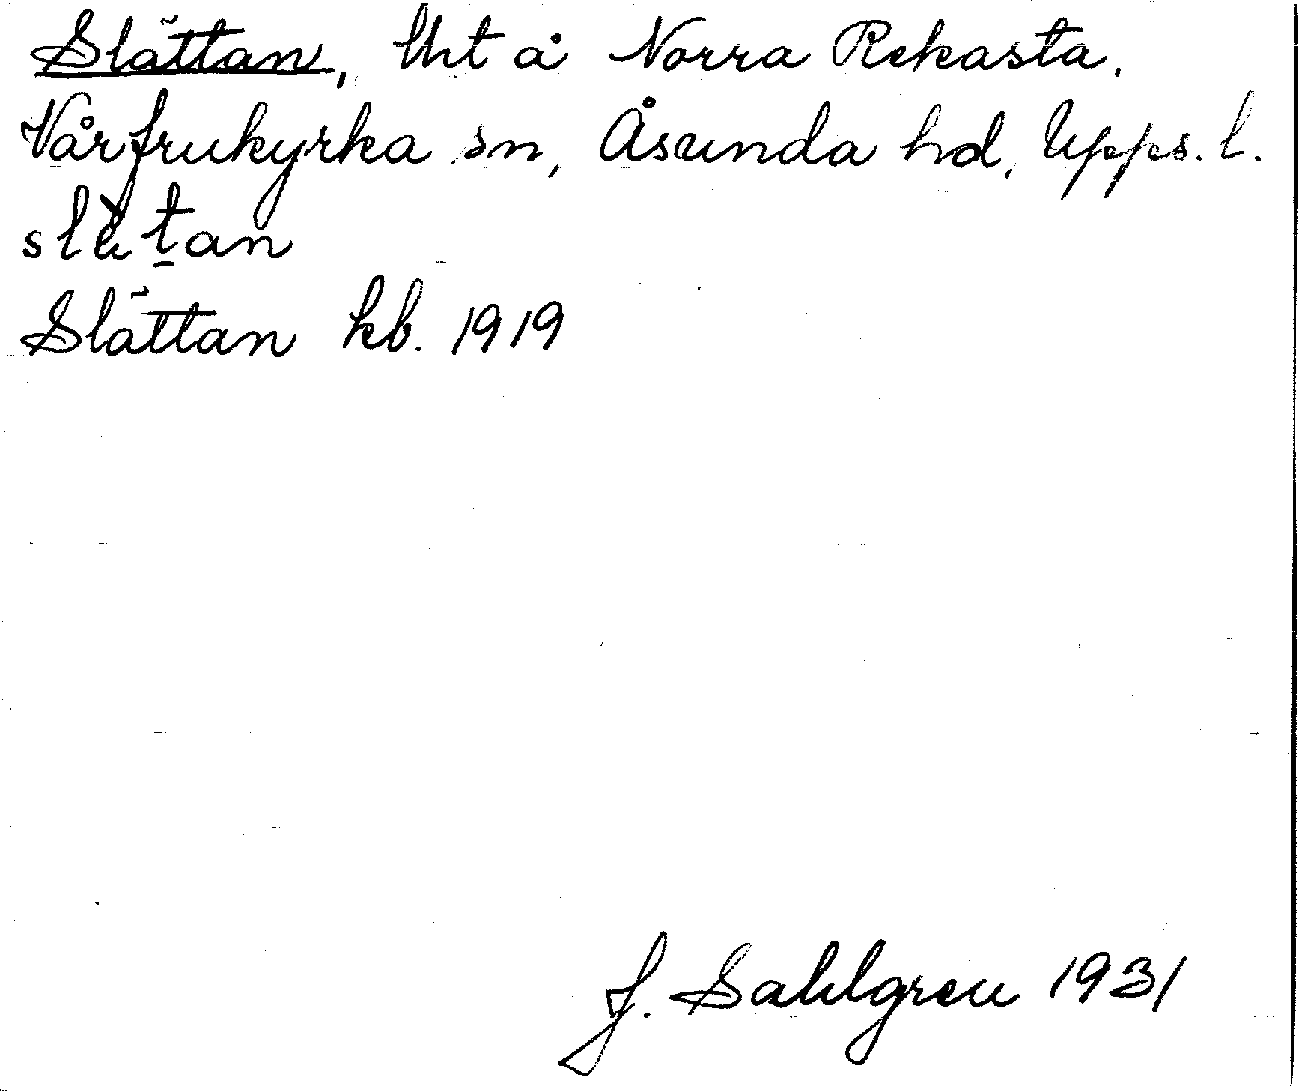 Slättan, Uht å Norra Rekasta,
Vårfrukyrka sn, Åsunda hd, Upps. l.
slätan
Slättan kb. 1919
J. Sahlgren 1931